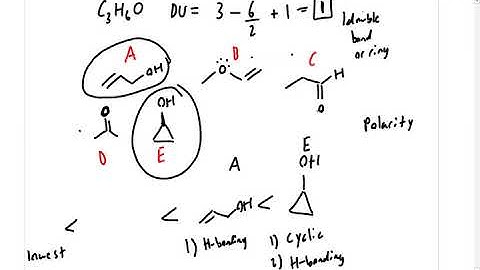 C3H6O DU = 3 - 6/2 + 1 = 1
1 double bond or ring
A
OH
O
D
H
C
O
O
D
OH
E
Polarity
A
E
OH
< < OH <
lowest
1) H-bonding
1) Cyclic
2) H-bonding